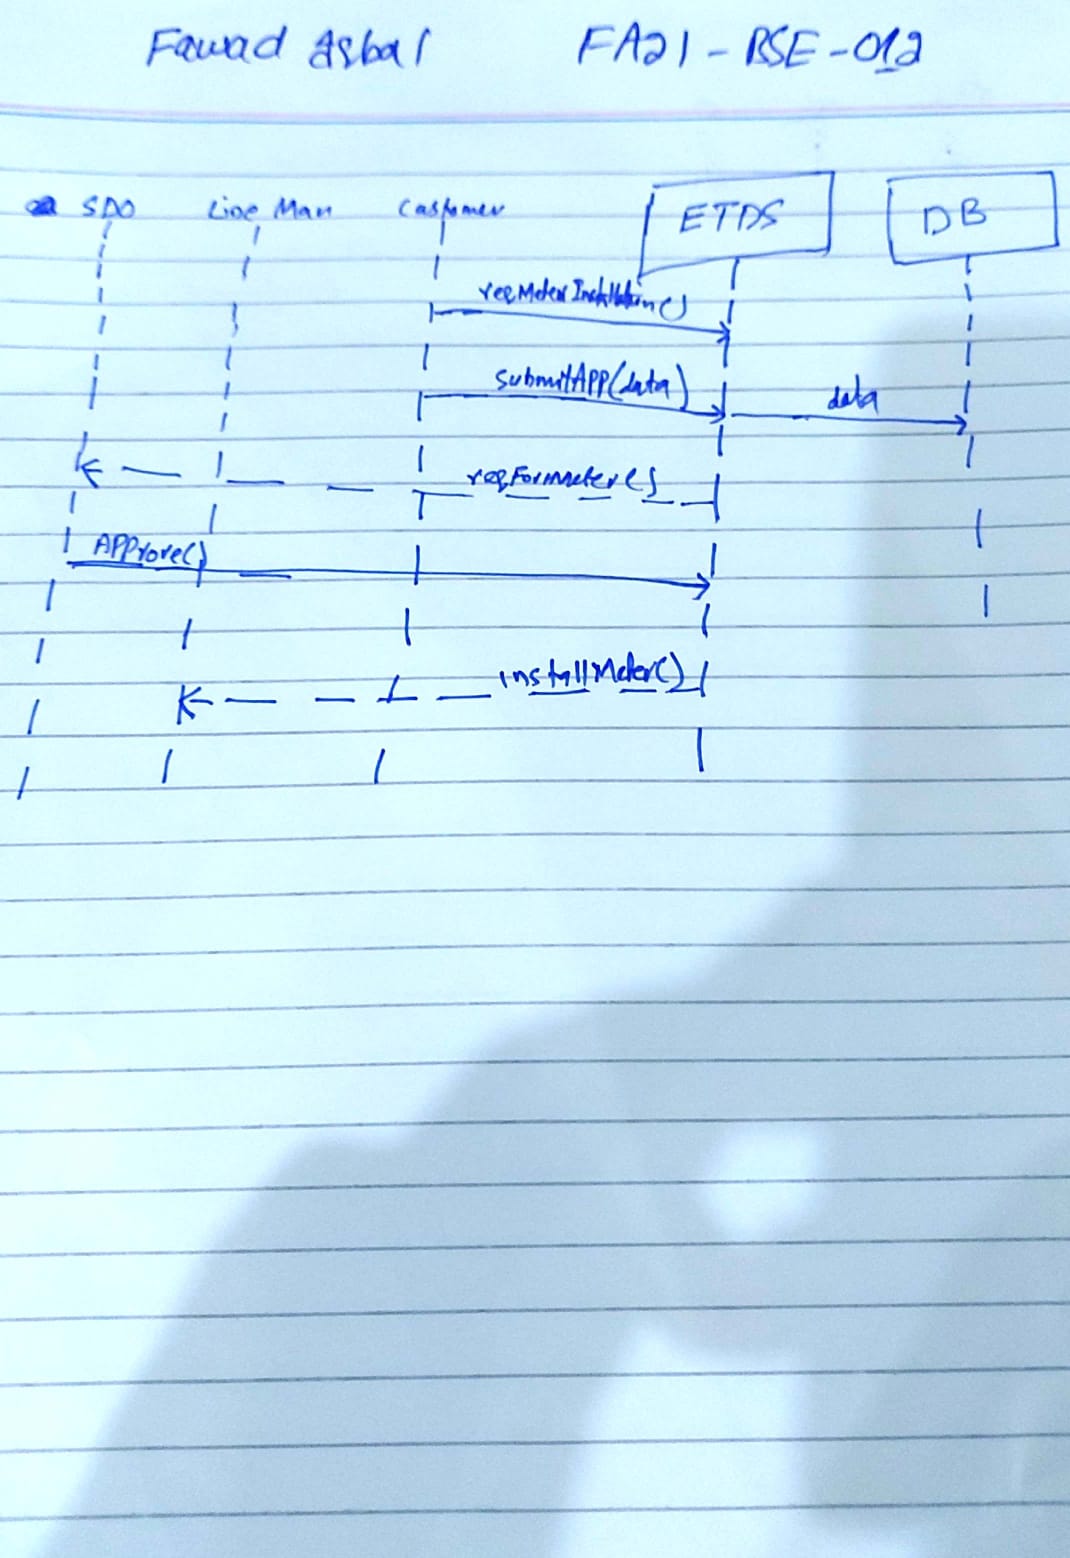 Fawad Iqbal FA21-BSE-012
SDO Line Man Customer ETDS DB
reqMeterInstallation()
submitAPP(data) data
reqFormeter()
APProve()
installMeter()